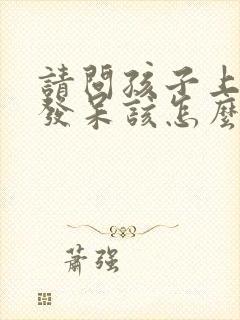 請問孩子上
發呆該怎麼
蕭强